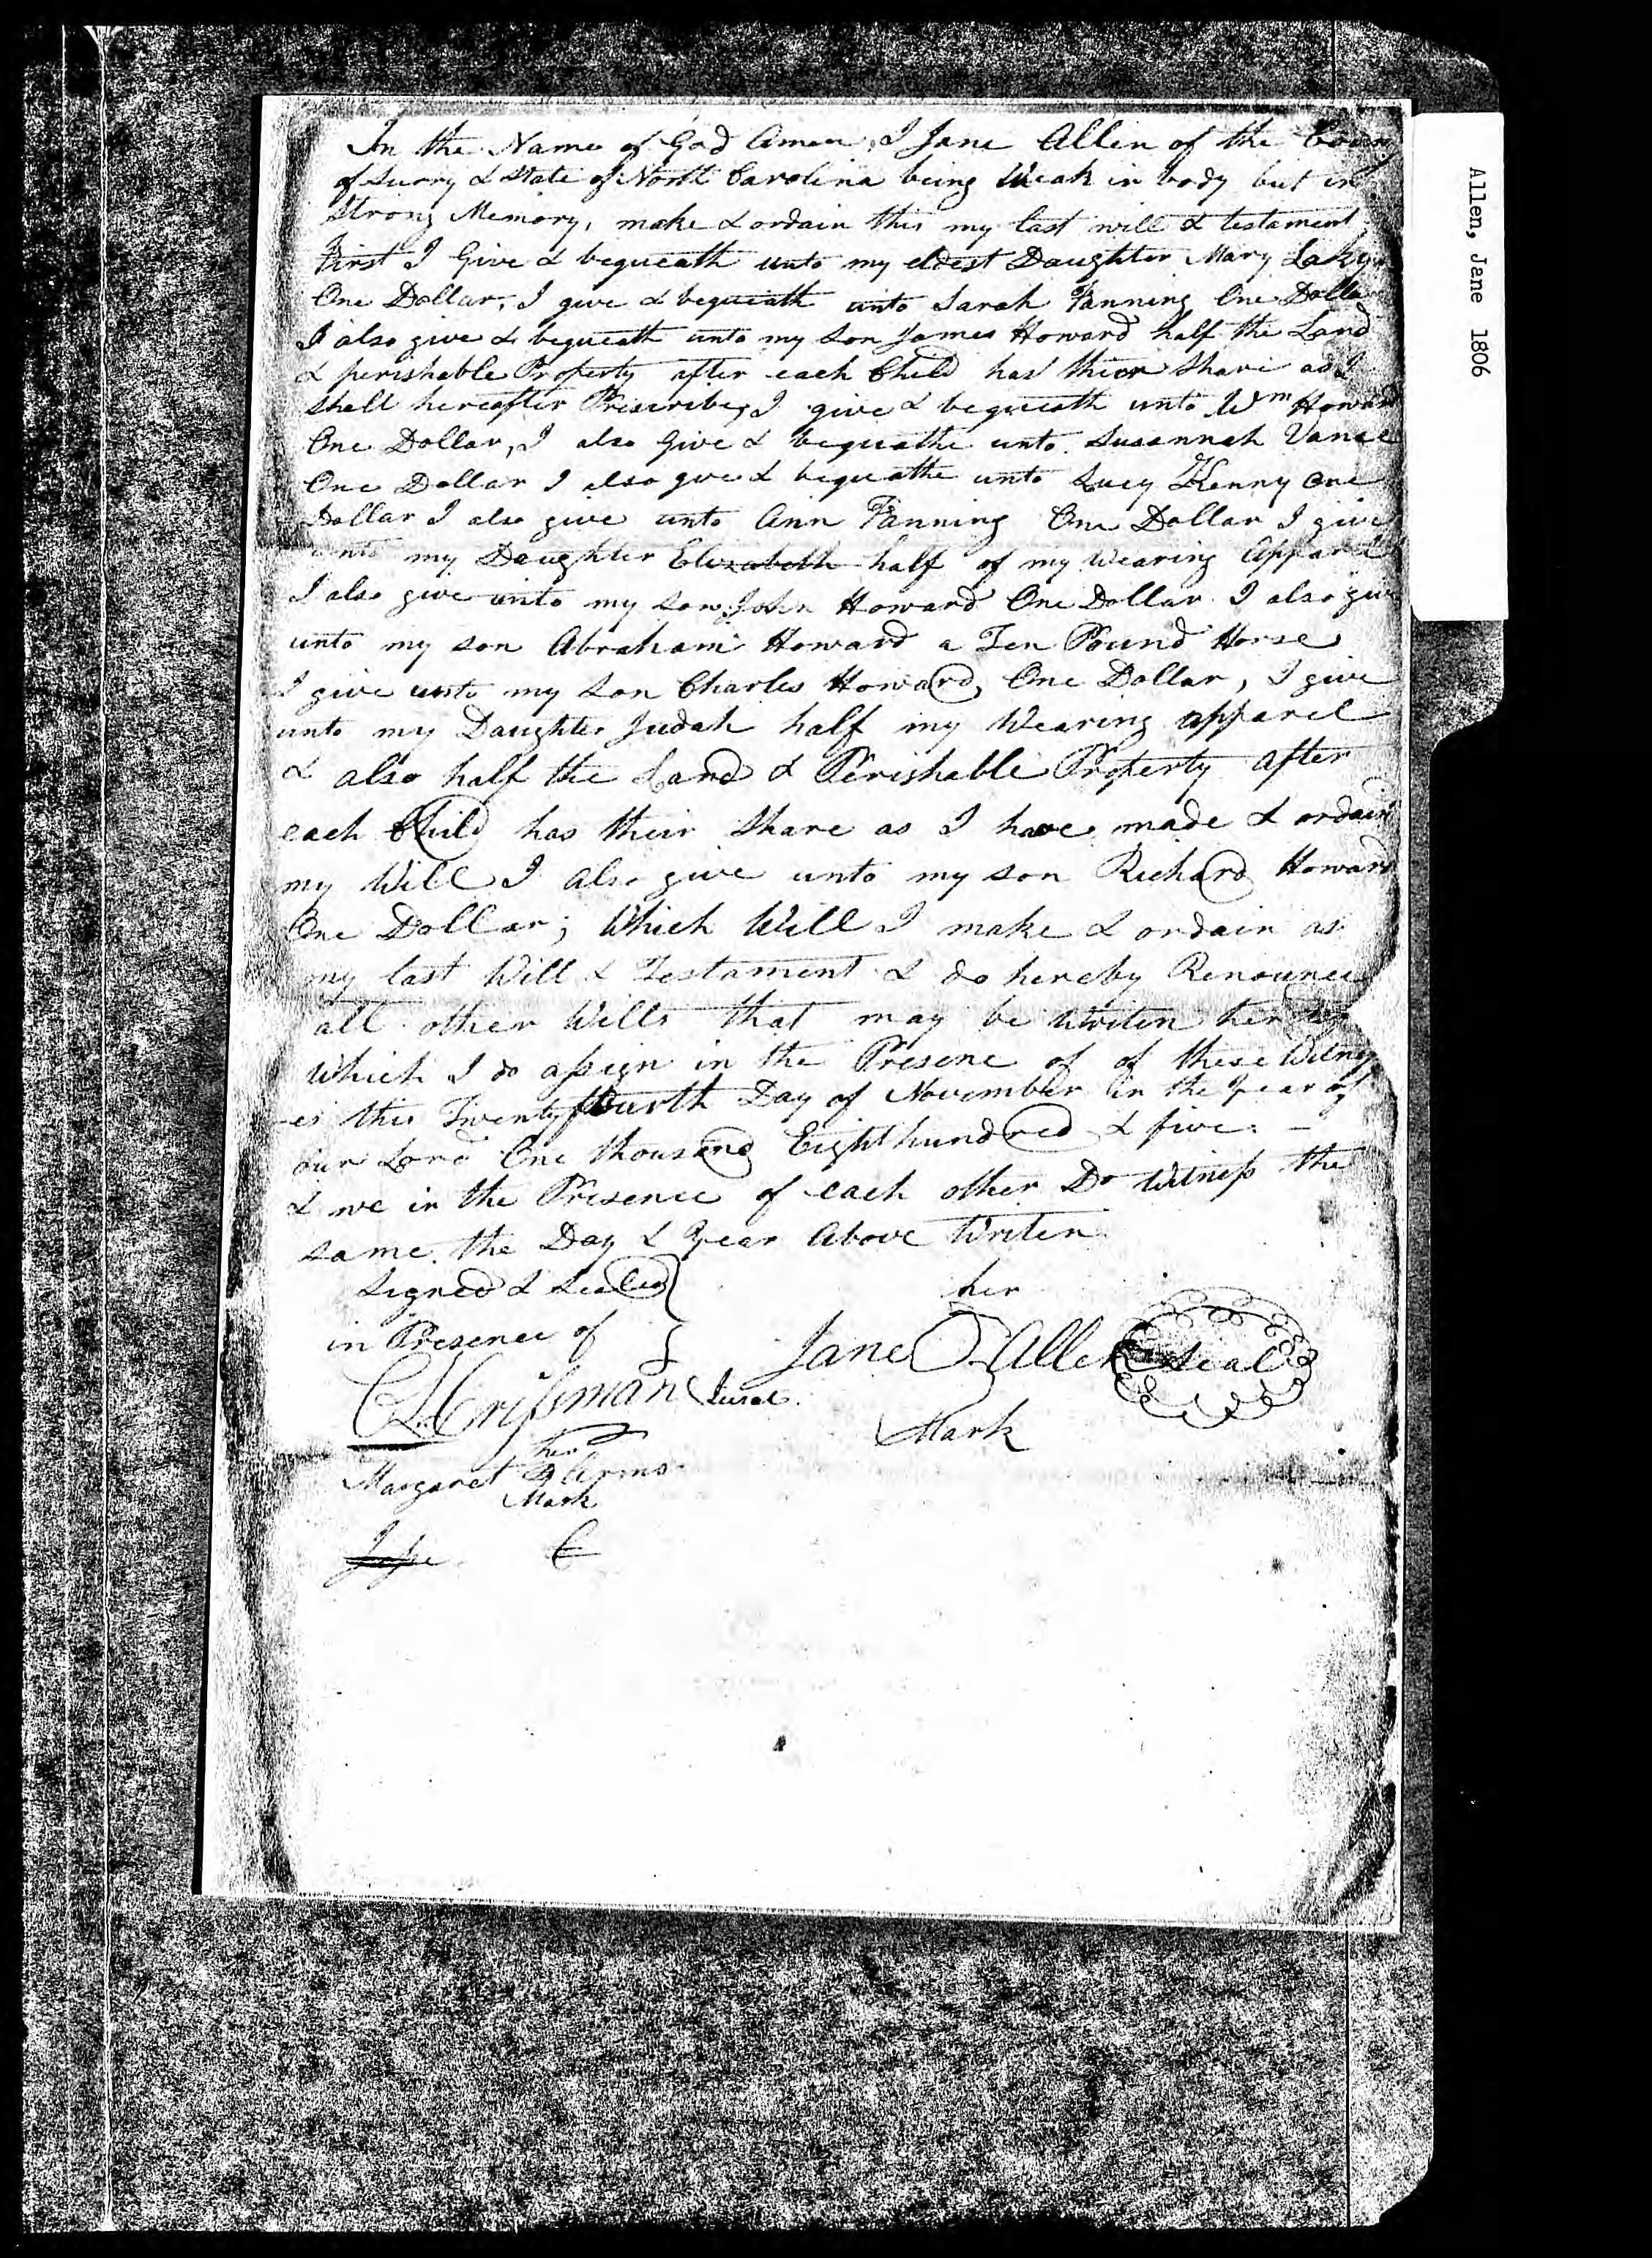 In the Name of God Amen, I Jane Allen of the County
of Surry & State of North Carolina being Weak in body but in
Strong Memory, make & ordain this my last will & testament
First I Give & bequeath unto my eldest Daughter Mary
One Dollar, I give & bequeath unto Sarah Fanning One Dollar
I also give & bequeath unto my Son James Howard half the Land
& perishable Property after each Child has their Share as I
Shall hereafter Prescribe, I give & bequeath unto Wm Howard
One Dollar, I also Give & bequeathe unto Susannah Vance
One Dollar I also give & bequeathe unto Lucy Kenny One
Dollar I also give unto Ann Fanning One Dollar I give
unto my Daughter Elizabeth half of my Wearing Apparel
I also give unto my Son John Howard One Dollar I also give
unto my son Abraham Howard a Ten Pound Horse
I give unto my Son Charles Howard, One Dollar, I give
unto my Daughter Judah half my Wearing apparel
& also half the Land & Perishable Property after
each Child has their Share as I have made & ordain
my Will I also give unto my son Richard Howard
One Dollar; Which Will I make & ordain as
my last Will & Testament & do hereby Renounce
all other Wills that may be writen
Which I do assign in the Presene of of these Witness
-es this Twenty fourth Day of November in the Year of
Our Lord One thousand Eight hundred & five. -
& we in the Presence of each other Do Witness the
same the Day & Year Above Writen
Signed & Sealed
in Presence of
her
Jane Allen Seal
Mark
Crissman Jurat
her
Margaret Arms
Mark
C
Allen, Jane 1806